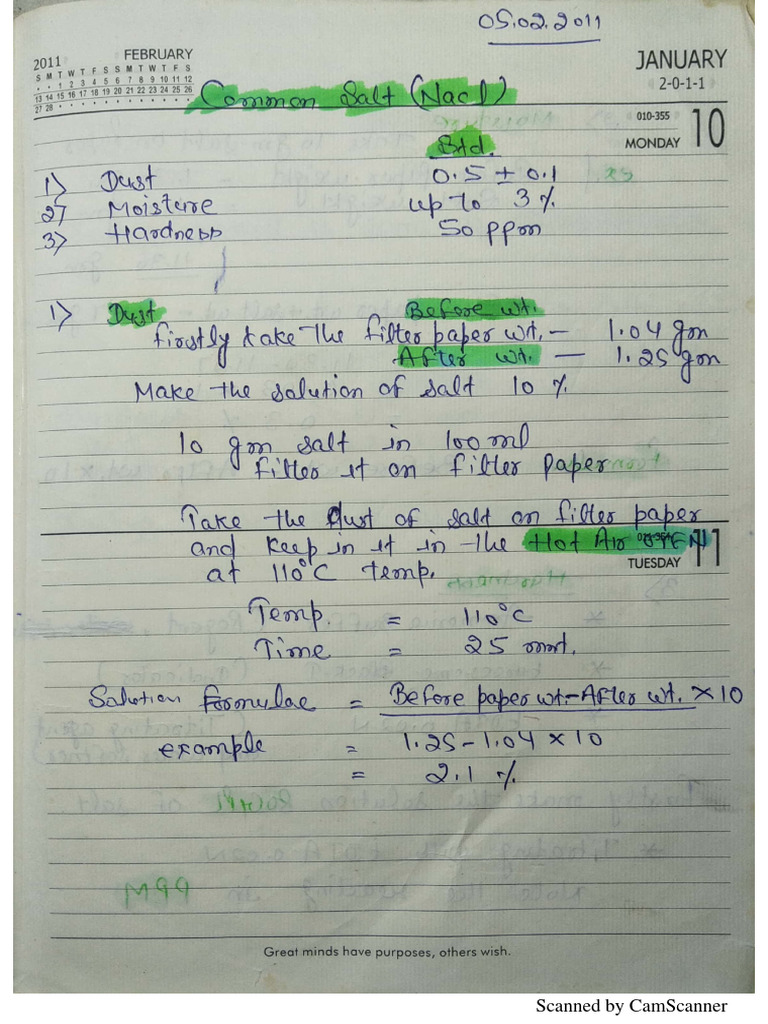 05.02.2011
2011 FEBRUARY
S M T W T F S S M T W T F S
• • 1 2 3 4 5 6 7 8 9 10 11 12
13 14 15 16 17 18 19 20 21 22 23 24 25 26
27 28 • • • • • • • • • • • •
JANUARY
2-0-1-1
Common Salt (Nacl)
010-355
MONDAY 10
Std.
1) Dust 0.5 ± 0.1
2) Moisture up to 3 %
3) Hardness 50 ppm
1) Dust Before wt.
firstly take the filter paper wt. – 1.04 gm
After wt. – 1.25 gm
Make the solution of salt 10 %
10 gm salt in 100 ml
filter it on filter paper
Take the dust of salt on filter paper
and keep in it in the Hot Air OVEN
011-354
TUESDAY 11
at 110°C temp.
Temp. = 110°C
Time = 25 mnt.
Solution formulae = Before paper wt. – After wt. × 10
example = 1.25 – 1.04 × 10
= 2.1 %
PPM
Great minds have purposes, others wish.
Scanned by CamScanner